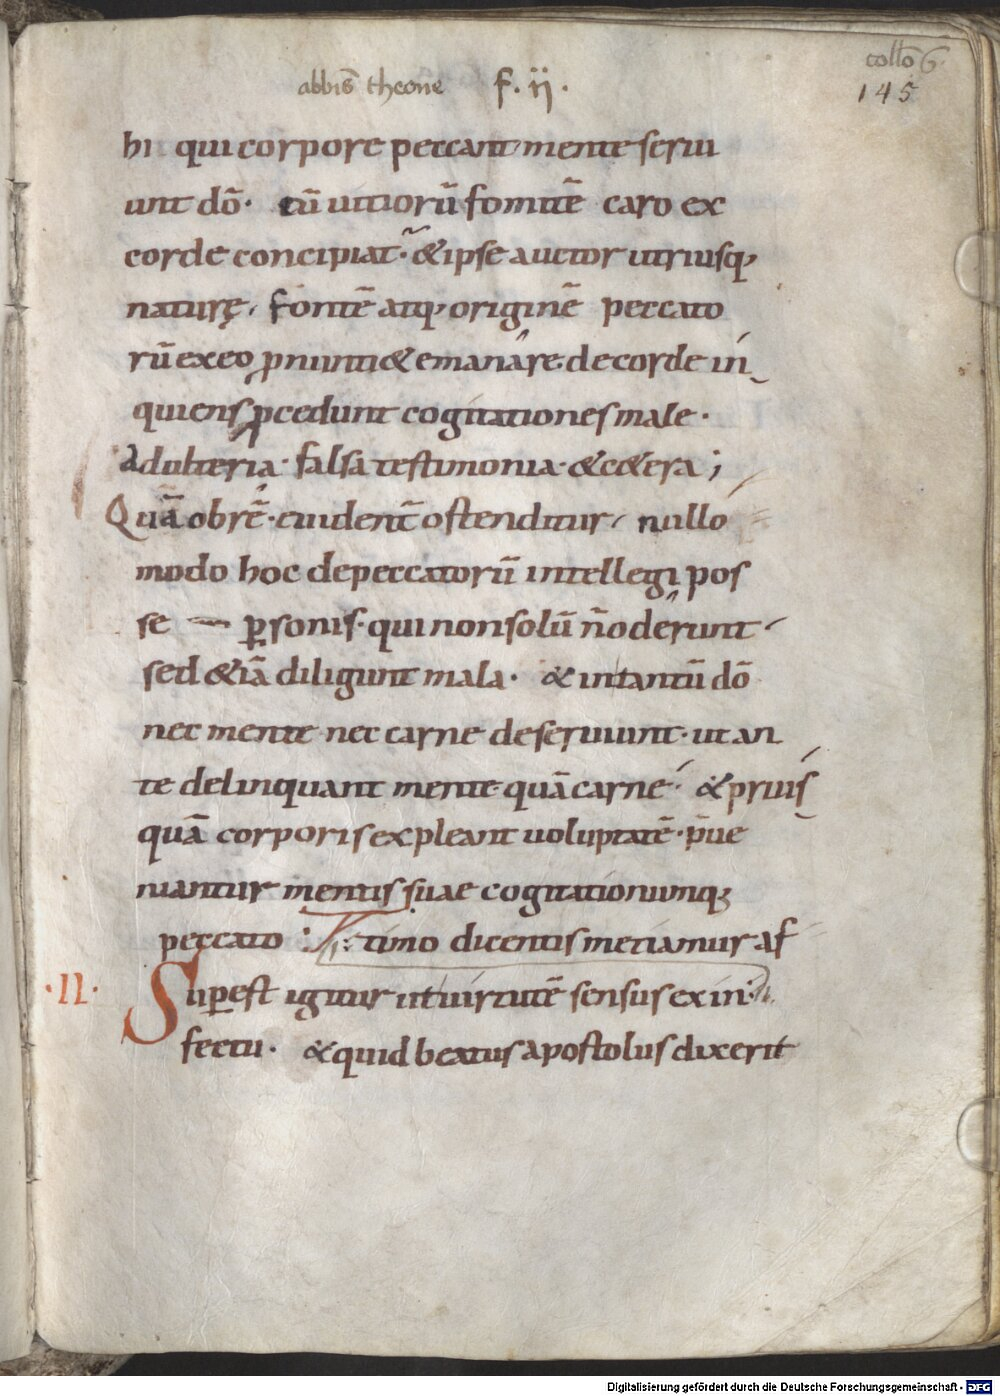 abbis̄ theone f. ii. collō 6.
145
hi qui corpore peccant mente serui
unt dō. cū uitiorū fomitē caro ex
corde concipiat. & ipse auctor utriusq;
naturę, fontē atq; originē peccato
rū ex eo ꝓnuntiet emanare. de corde in
quiens ꝓcedunt cogitationes male.
adulteria. falsa testimonia. & cetera;
Quā obrē. euidentē ostenditur, nullo
modo hoc de peccatorū intellegi pos
se ꝑsonis. qui non solū n̄ oderunt
sed &iā diligunt mala. & in tantū dō
nec mente nec carne deseruiunt. ut an
te delinquant mente quā carne. & prius
quā corporis expleant uoluptatē. p̄ue
niantur mentis suae cogitationumq;
peccato : timo dicentis metiamur af
.II. Suꝑest igitur ut uirtutē sensus ex in
fectu. & quid beatus apostolus dixerit
Digitalisierung gefördert durch die Deutsche Forschungsgemeinschaft - DFG